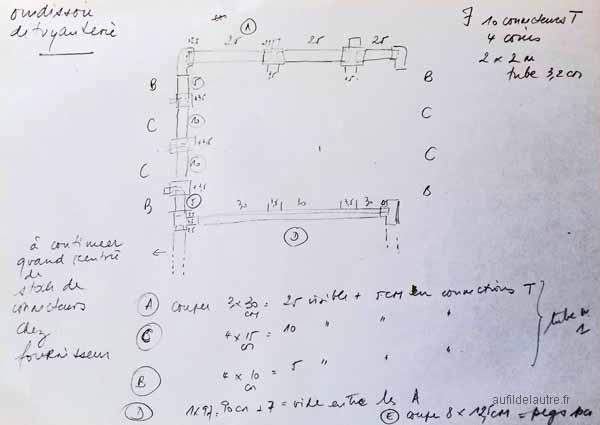 ourdissoir
de tuyauterie
A
10 connecteurs T
4 coins
2 x 2 m
tube 3,2 cm
25
25
25
B
5
B
C
10
C
C
10
C
B
5
B
30
3,5
30
3,5
30
D
à continuer
quand rentrée
de
stock de
connecteurs
chez
fournisseur
A couper 3 x 30 cm = 25 visible + 5 cm en connections T
C 4 x 15 cm = 10 " " "
B 4 x 10 cm = 5 " " "
tube n
1
D 1 x 97: 90 cm + 7 = vide entre les A
E coupe 8 x 12,5 cm = pegs
aufildelautre.fr